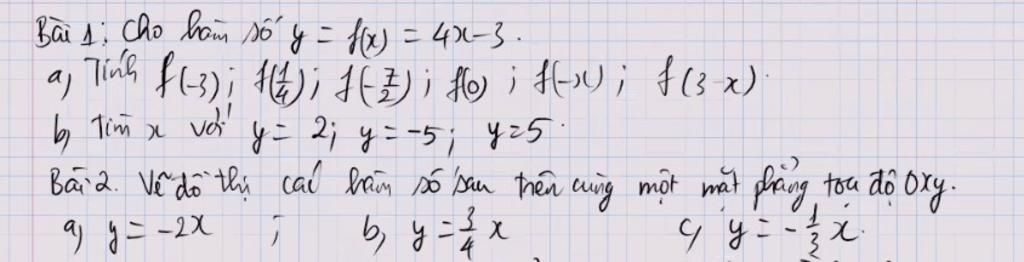 Bài 1: Cho hàm số y = f(x) = 4x-3.
a) Tính f(-3); f(1/4); f(-7/2); f(0); f(-x); f(3-x).
b) Tìm x với y = 2; y = -5; y = 5.
Bài 2. Vẽ đồ thị các hàm số sau trên cùng một mặt phẳng tọa độ Oxy.
a) y = -2x ; b) y = 3/4 x c) y = -1/2 x.